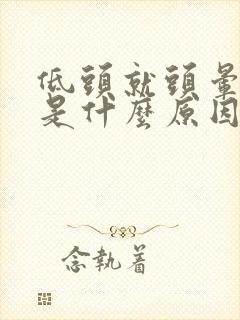 低頭就頭暈
是什麼原因
念執着